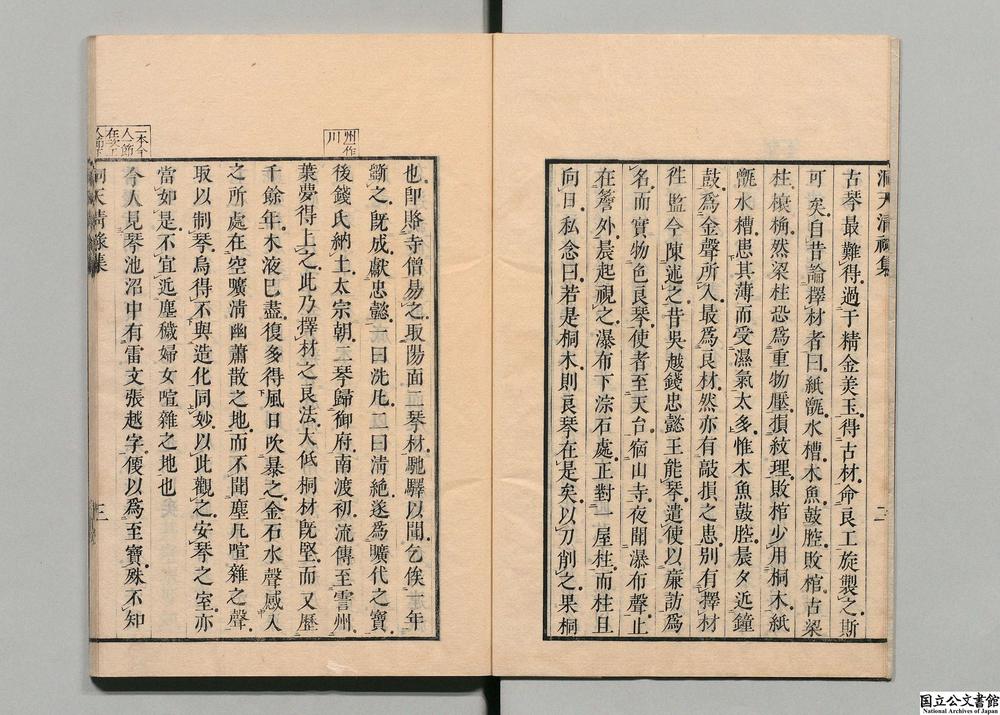 洞天清祿集
二
古琴最難得過于精金美玉得古材命良工旋製之斯
可矣自昔論擇材者曰紙甑水槽木魚鼓腔敗棺古梁
柱榱桷然梁柱恐爲重物壓損紋理敗棺少用桐木紙
甑水槽患其薄而受濕氣太多惟木魚鼓腔晨夕近鐘
鼓爲金聲所入最爲良材然亦有敲損之患别有擇材
徃監今陳述之昔吳越錢忠懿王能琴遣使以廉訪爲
名而實物色良琴使者至天台宿山寺夜聞瀑布聲止
在簷外晨起視之瀑布下淙石處正對一屋柱而柱且
向日私念曰若是桐木則良琴在是矣以刀削之果桐
州作
川
也卽賂寺僧易之取陽面二琴材馳驛以聞乞俟一年
斵之既成獻忠懿一曰洗凡二曰清絶遂爲曠代之寶
後錢氏納土太宗朝二琴歸御府南渡初流傳至霅州
葉夢得上之此乃擇材之良法大低桐材既堅而又歷
千餘年木液已盡復多得風日吹暴之金石水聲感入
之所處在空曠清幽蕭散之地而不聞塵凡喧雜之聲
取以制琴烏得不與造化同妙以此觀之安琴之室亦
當如是不宜近塵穢婦女喧雜之地也
一本今
人一節
今人見琴池沼中有雷文張越字便以爲至寶殊不知
洞天清祿集
三
国立公文書館
National Archives of Japan